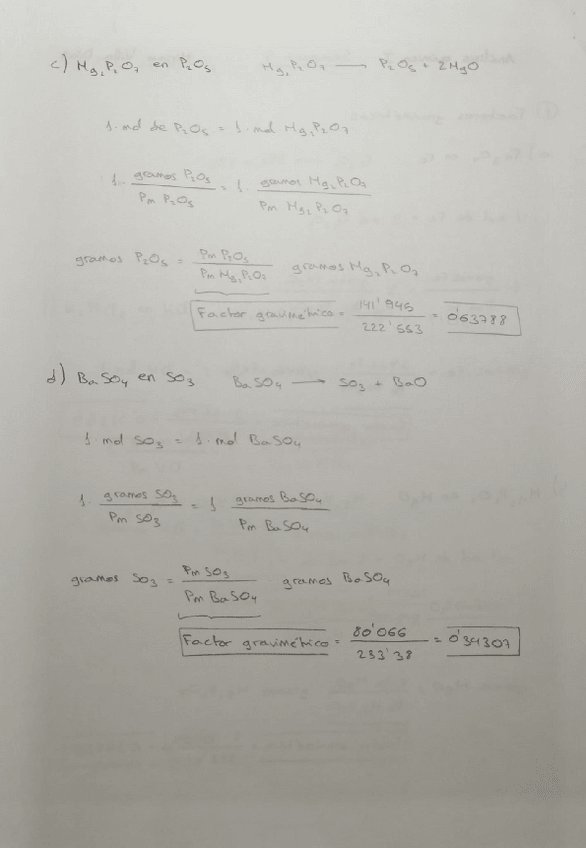 c) Mg₂P₂O₇ en P₂O₅ Mg₂P₂O₇ → P₂O₅ + 2MgO
1·mol de P₂O₅ = 1·mol Mg₂P₂O₇
1· gramos P₂O₅ / Pm P₂O₅ = 1· gramos Mg₂P₂O₇ / Pm Mg₂P₂O₇
gramos P₂O₅ = Pm P₂O₅ / Pm Mg₂P₂O₇ gramos Mg₂P₂O₇
Factor gravimétrico = 141'945 / 222'553 = 0'63788
d) BaSO₄ en SO₃ BaSO₄ → SO₃ + BaO
1 mol SO₃ = 1·mol BaSO₄
1· gramos SO₃ / Pm SO₃ = 1 gramos BaSO₄ / Pm BaSO₄
gramos SO₃ = Pm SO₃ / Pm BaSO₄ gramos BaSO₄
Factor gravimétrico = 80'066 / 233'38 = 0'34307